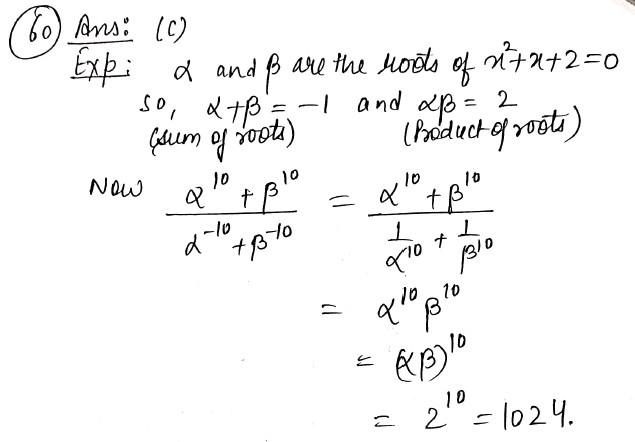 60 Ans: (C)
Exp: α and β are the roots of x²+x+2=0
so, α+β = -1 and αβ = 2
(sum of roots) (Product of roots)
Now (α¹⁰ + β¹⁰)/(α⁻¹⁰ + β⁻¹⁰) = (α¹⁰ + β¹⁰)/(1/α¹⁰ + 1/β¹⁰)
= α¹⁰ β¹⁰
= (αβ)¹⁰
= 2¹⁰ = 1024.